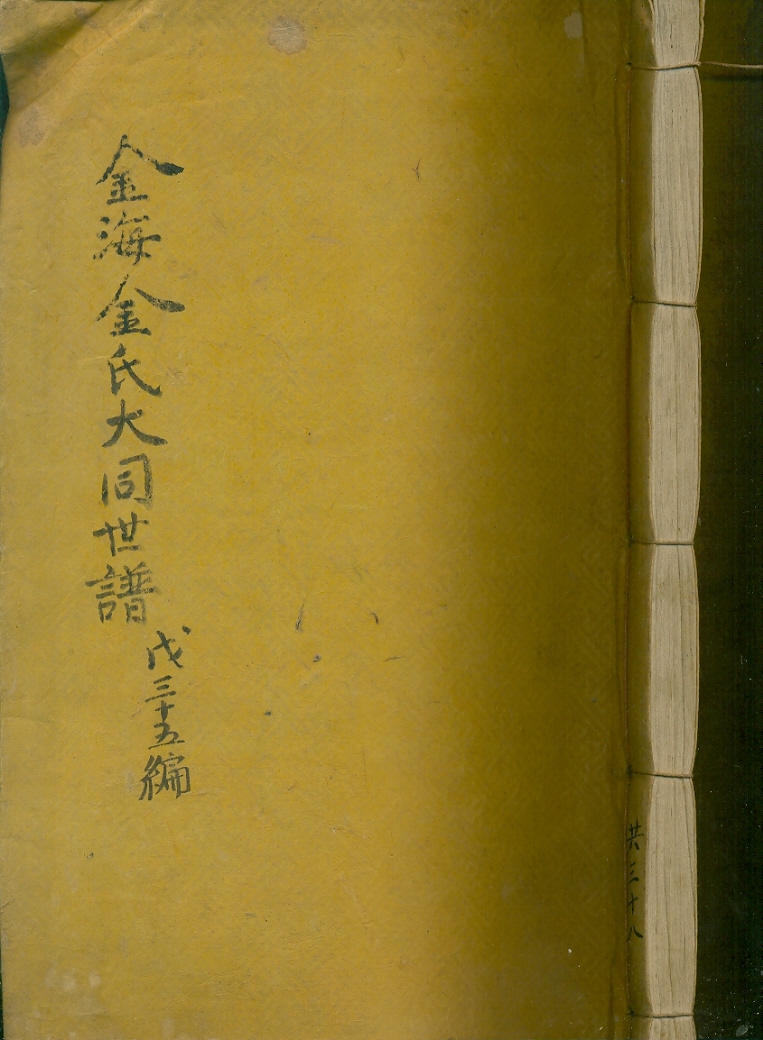 金海金氏大同世譜
戊三十五編
共三十八